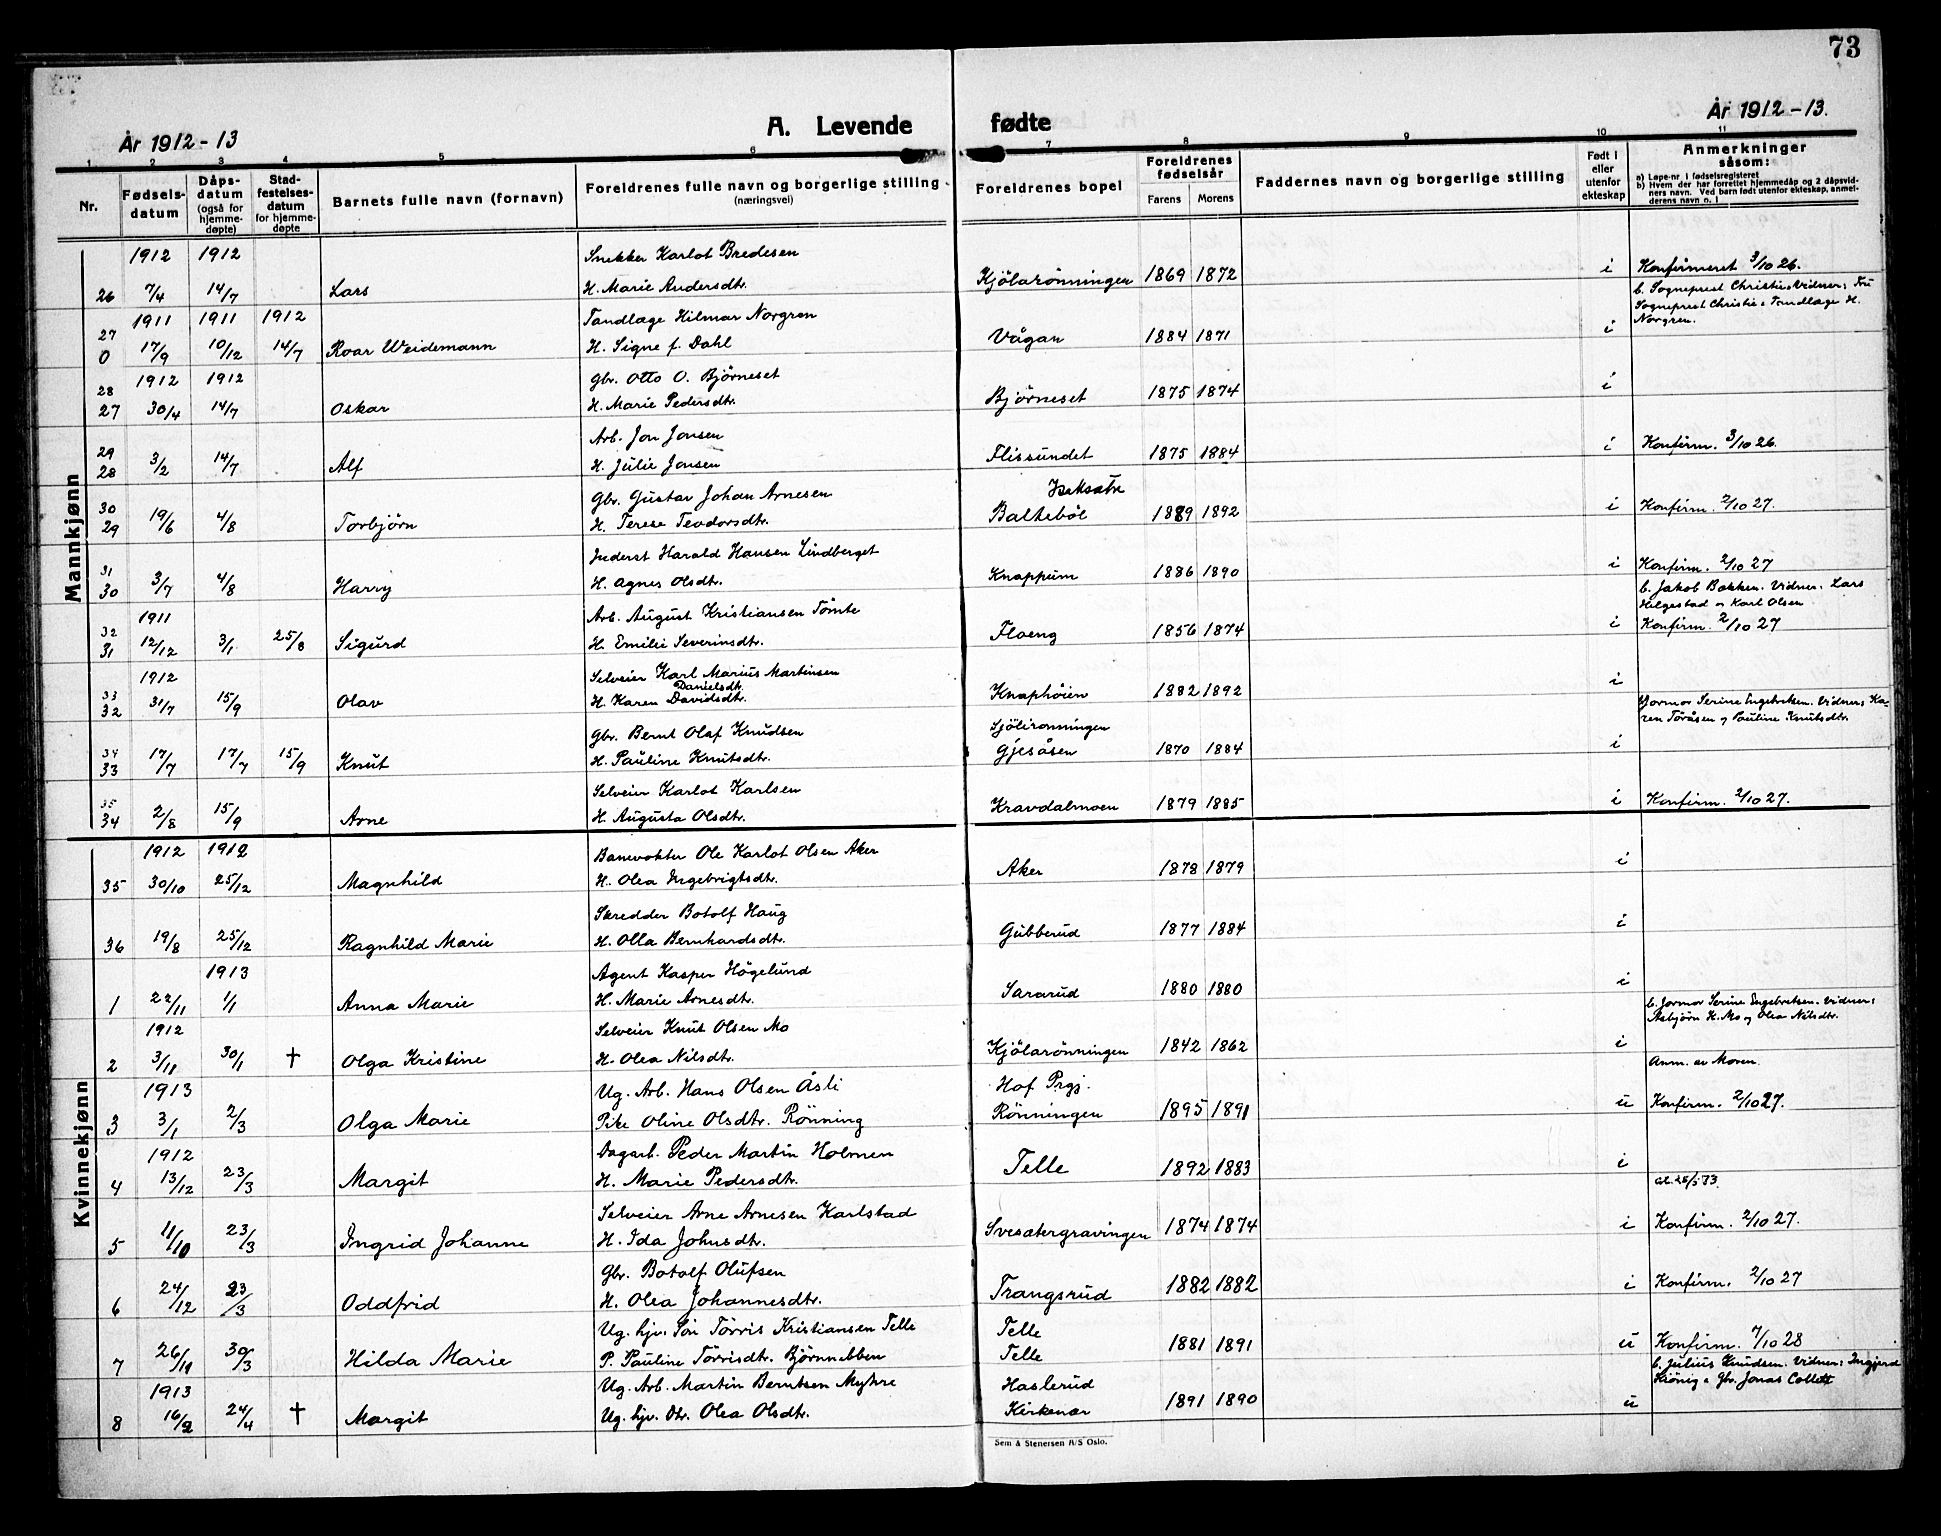 73
År 1912-13
A. Levende fødte
År 1912-13.
1 2 3 4 5 6 7 8 9 10 11
Nr.
Fødselsdatum
Dåpsdatum (også for hjemmedøpte)
Stadfestelsesdatum for hjemmedøpte
Barnets fulle navn (fornavn)
Foreldrenes fulle navn og borgerlige stilling (næringsvei)
Foreldrenes bopel
Foreldrenes fødselsår
Farens Morens
Faddernes navn og borgerlige stilling
Født i eller utenfor ekteskap
Anmerkninger såsom:
a) Løpe-nr i fødselsregisteret
b) Hvem der har forrettet hjemmedåp og 2 dåpsvidners navn. Ved barn født utenfor ekteskap, anmelderens navn o. l
Mannkjønn
1912 1912 Snekker Karlot Bredesen
26 7/4 14/7 Lars H. Marie Andersdtr. Kjölarönningen 1869 1872 i Konfirmeret 3/10 26.
b. Sogneprest Christie. Vidner: Fru
Sogneprest Christie o Tandlæge H.
Norgren.
27 1911 1911 1912 Tandlæge Hilmar Norgren
0 17/9 10/12 14/7 Roar Weidemann H. Signe f. Dahl Vågan 1884 1871 i
28 1912 1912 Gbr. Otto O. Björneset
27 30/4 14/7 Oskar H. Marie Pedersdtr. Björneset 1875 1874 i
29 Arb. Jon Jonsen
28 3/2 14/7 Alf H. Julie Jonsen Flissundet 1875 1884 i Konfirm. 3/10 26.
30 Gbr. Gustav Johan Arnesen
29 19/6 4/8 Torbjörn H. Terese Teodorsdtr. Balteböl 1889 1892 i Konfirm. 2/10 27.
31 Inderst Harald Hansen Lindberget
30 3/7 4/8 Harry H. Agnes Olsdtr. Knappum 1886 1890 i Konfirm. 2/10 27
b. Jakob Bakken. Vidner: Lars
Helgestad og Karl Olsen
32 1911 Arb. August Kristiansen Tömte
31 12/12 3/1 25/8 Sigurd H. Emilie Severinsdtr. Floeng 1856 1874 i Konfirm. 2/10 27
33 1912 Selveier Karl Marius Martinsen
Danielsdtr.
32 31/7 15/9 Olav H. Karen Davidsdtr. Knaphöien 1882 1892 i
Jormor Serine Engebretsen. Vidner: Karen Toråsen og Pauline Knutsdtr.
34 Gbr. Bernt Olaf Knudsen Sjölirönningen
33 17/7 17/7 15/9 Knut H. Pauline Knutsdtr. Gjesåsen 1870 1884 i
35 Selveier Karlot Karlsen
34 2/8 15/9 Arne H. Augusta Olsdtr. Kravdalmoen 1879 1885 i Konfirm. 2/10 27.
Kvinnekjønn
1912 1912 Banevokter Ole Karlot Olsen Aker
35 30/10 25/12 Magnhild H. Olea Ingebrigtsdtr. Aker 1878 1879 i
Skredder Botolf Haug
36 19/8 25/12 Ragnhild Marie H. Olla Bernhardsdtr. Gubberud 1877 1884 i
1913 Agent Kasper Högelund
1 22/11 1/1 Anna Marie H. Marie Arnesdtr. Sararud 1880 1880 i
b. Jormor Serine Engebretsen. Vidner:
Asbjörn H. Mo og Olea Nilsdtr.
1912 Selveier Knut Olsen Mo
2 3/11 30/1 † Olga Kristine H. Olea Nilsdtr. Kjölarönningen 1842 1862 i
Anm. av Moren.
1913 Ug. Arb. Hans Olsen Åsli Hof Prgj.
3 3/1 2/3 Olga Marie Pike Oline Olsdtr. Rönning Rönningen 1895 1891 u Konfirm. 2/10 27.
1912 Dagarb. Peder Martin Holmen
4 13/12 23/3 Margit H. Marie Pedersdtr. Telle 1892 1883 i
Selveier Arne Arnesen Karlstad
5 11/10 23/3 Ingrid Johanne H. Ida Johnsdtr. Svesætergravingen 1874 1874 i Konfirm. 2/10 27.
Gbr. Botolf Olufsen
6 24/12 23/3 Oddfrid H. Olea Johannesdtr. Trangsrud 1882 1882 i Konfirm. 2/10 27
Ug. hjv. Sön Törris Kristiansen Telle Telle
7 26/11 30/3 Hilda Marie P. Pauline Törrisdtr. Björnnebben Telle 1881 1891 u Konfirm. 7/10 28
b. Julius Knudsen. Vidner: Ingjerd
Krönig o Gbr. Jonas Collett
1913 Ug. Arb. Martin Berntsen Myhre Haslerud
8 16/2 24/4 † Margit Ug. hjv. Dtr. Olea Olsdtr. Kirkenær 1891 1890 u
Sem & Stenersen A/S Oslo.